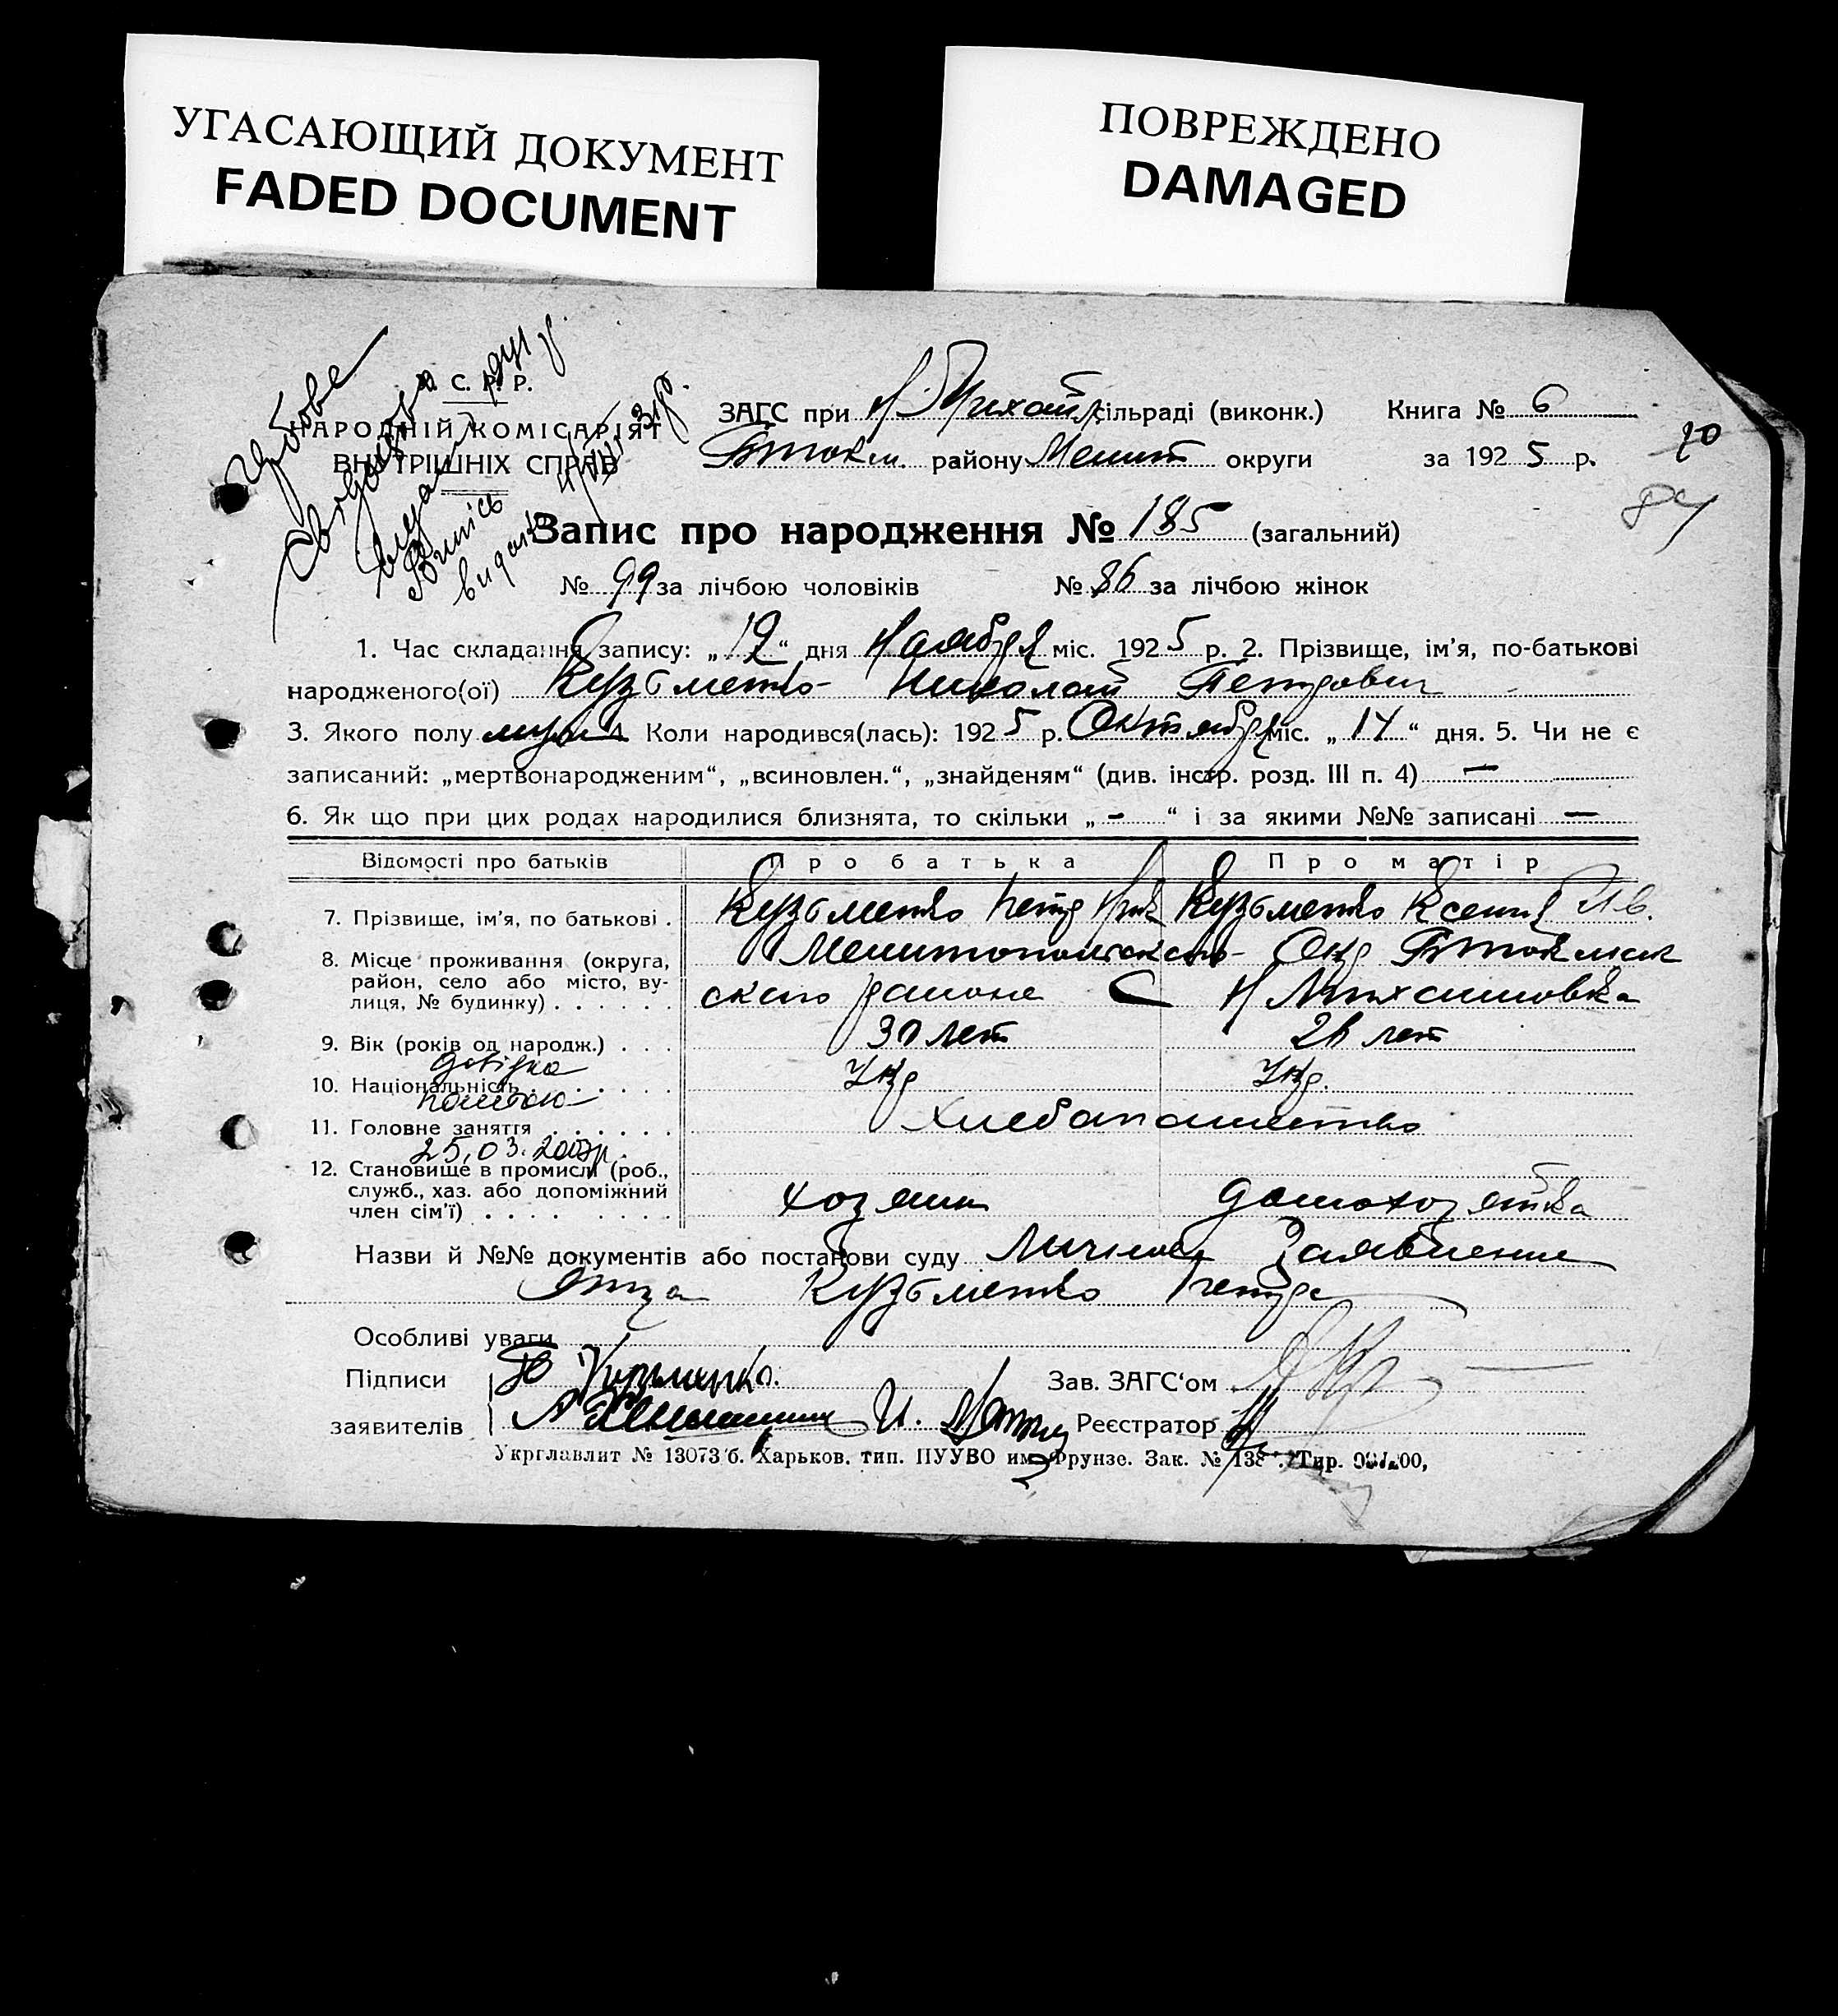 УГАСАЮЩИЙ ДОКУМЕНТ
FADED DOCUMENT
ПОВРЕЖДЕНО
DAMAGED
С. Р. Р.
НАРОДНІЙ КОМІСАРІЯТ
ВНУТРІШНІХ СПРАВ
Випись
видано
ЗАГС при Н. Михайл. сільраді (виконк.) Книга № 6
Бток м. району Мелит округи за 1925 р.
70
84
Запис про народження № 185 (загальний)
№ 99 за лічбою чоловіків № 86 за лічбою жінок
1. Час складання запису: „12“ дня Наября міс. 1925 р. 2. Прізвище, ім’я, по-батькові
народженого(ої) Кузьменко Николай Петрович
3. Якого полу муж 4. Коли народився(лась): 1925 р. Октября міс. „14“ дня. 5. Чи не є
записаний: „мертвонародженим“, „всиновлен.“, „знайденям“ (див. інстр. розд. III п. 4) —
6. Як що при цих родах народилися близнята, то скільки „-“ і за якими №№ записані —
Відомості про батьків Про батька Про матір
7. Прізвище, ім’я, по батькові . Кузьменко Петр Кузьменко Ксения Ив.
8. Місце проживання (округа, район, село або місто, вулиця, № будинку) Мелитопольского Окр Бтокмак
ского района С Н Михайловка
9. Вік (років од народж.) . . . 30 лет 26 лет
довідка
10. Національність . . . . . . Укр Укр.
поштою
11. Головне заняття . . . . . . Хлебопашество
25.03.2003р.
12. Становище в промислі (роб., служб., хаз. або допоміжний член сім’ї) . . . . хозяин домохозяйка
Назви й №№ документів або постанови суду Личное Заявление
отца Кузьменко Петра
Особливі уваги
Підписи Кузьменко. Зав. ЗАГС‘ом
заявителів И. Реєстратор
Укрглавлит № 13073 б. Харьков. тип. ПУУВО им. Фрунзе. Зак. № 138 . Тир.